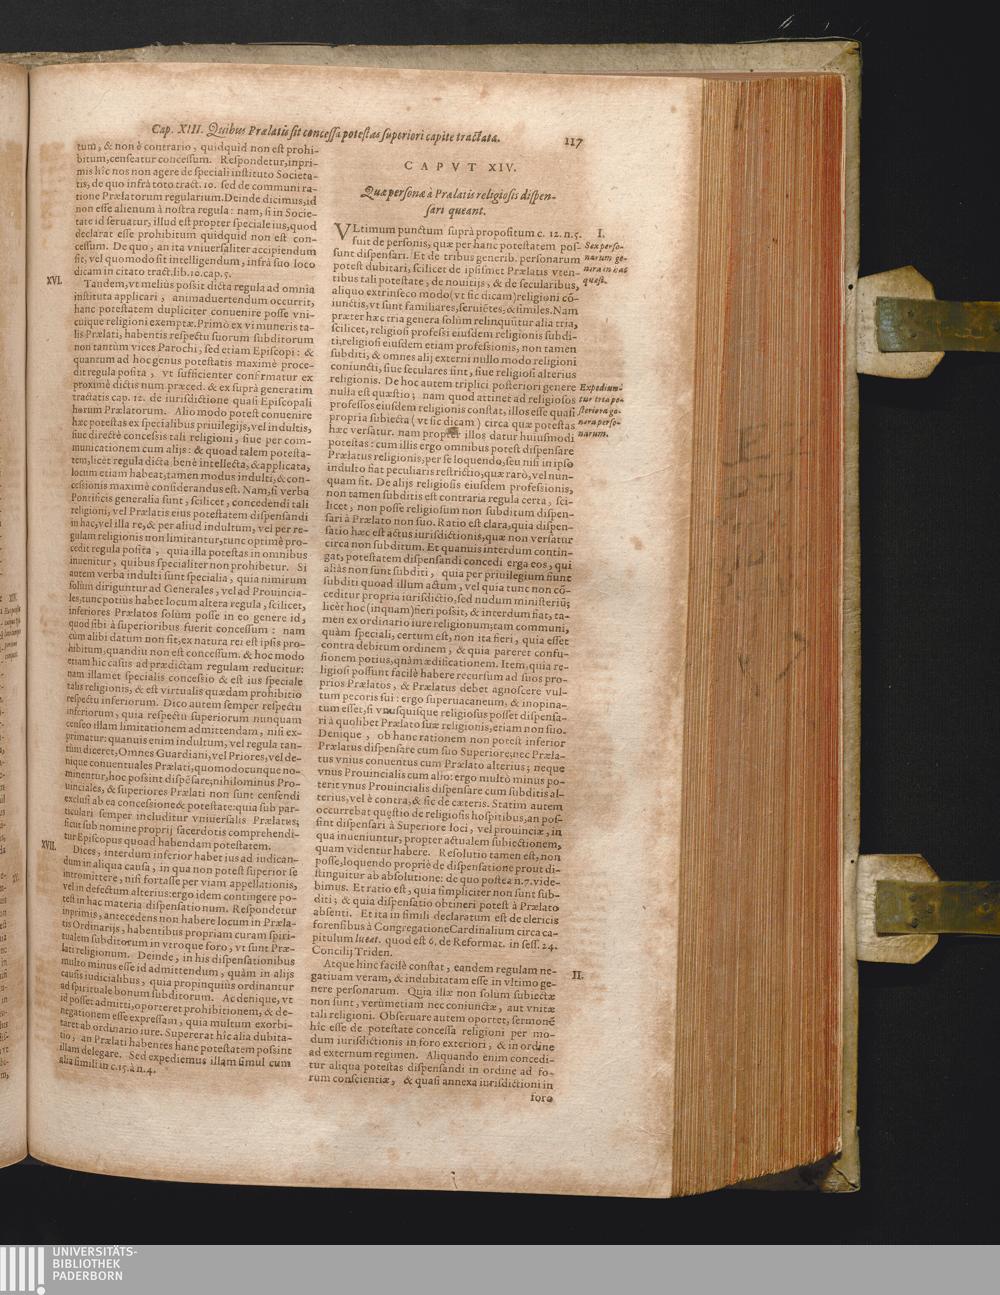 Cap. XIII. Quibus Prælatis sit concessa potestas superiori capite tractata.
117
tum, & non è contrario, quidquid non est prohi-
bitum, censeatur concessum. Respondetur, inpri-
mis hîc nos non agere de speciali instituto Societa-
tis, de quo infrà toto tract. 10. sed de communi ra-
tione Prælatorum regularium. Deinde dicimus, id
non esse alienum à nostra regula: nam, si in Socie-
tate id seruatur, illud est propter speciale ius, quod
declarat esse prohibitum quidquid non est con-
cessum. De quo, an ita vniuersaliter accipiendum
sit, vel quomodo sit intelligendum, infrà suo loco
dicam in citato tract. lib. 10. cap. 5.
XVI.
Tandem, vt melius possit dicta regula ad omnia
instituta applicari, animaduertendum occurrit,
hanc potestatem dupliciter conuenire posse vni-
cuique religioni exemptæ. Primò ex vi muneris ta-
lis Prælati, habentis respectu suorum subditorum
non tantùm vices Parochi, sed etiam Episcopi: &
quantum ad hoc genus potestatis maximè proce-
dit regula posita, vt sufficienter confirmatur ex
proximè dictis num. præced. & ex suprà generatim
tractatis cap. 12. de iurisdictione quasi Episcopali
horum Prælatorum. Alio modo potest conuenire
hæc potestas ex specialibus priuilegijs, vel indultis,
siue directè concessis tali religioni, siue per com-
municationem cum alijs: & quoad talem potesta-
tem, licèt regula dicta, benè intellecta, & applicata,
locum etiam habeat, tamen modus indulti, & con-
cessionis maximè considerandus est. Nam, si verba
Pontificis generalia sunt, scilicet, concedendi tali
religioni, vel Prælatis eius potestatem dispensandi
in hac, vel illa re, & per aliud indultum, vel per re-
gulam religionis non limitantur, tunc optimè pro-
cedit regula posita, quia illa potestas in omnibus
inuenitur, quibus specialiter non prohibetur. Si
autem verba indulti sunt specialia, quia nimirum
solùm diriguntur ad Generales, vel ad Prouincia-
les, tunc potius habet locum altera regula, scilicet,
inferiores Prælatos solùm posse in eo genere id,
quod sibi à superioribus fuerit concessum: nam
cùm alibi datum non sit, ex natura rei est ipsis pro-
hibitum, quandiu non est concessum. & hoc modo
etiam hic casus ad prædictam regulam reducitur:
nam illamet specialis concessio & est ius speciale
talis religionis, & est virtualis quædam prohibitio
respectu inferiorum. Dico autem semper respectu
inferiorum, quia respectu superiorum nunquam
censeo illam limitationem admittendam, nisi ex-
primatur: quamuis enim indultum, vel regula tan-
tùm diceret, Omnes Guardiani, vel Priores, vel de-
nique conuentuales Prælati, quomodocunque no-
minentur, hoc possint dispẽsare; nihilominus Pro-
uinciales, & superiores Prælati non sunt censendi
exclusi ab ea concessione & potestate: quia sub par-
ticulari semper includitur vniuersalis Prælatus;
sicut sub nomine proprij sacerdotis comprehendi-
tur Episcopus quoad habendam potestatem.
XVII.
Dices, interdum inferior habet ius ad iudican-
dum in aliqua causa, in qua non potest superior se
intromittere, nisi fortasse per viam appellationis,
vel in defectum alterius: ergo idem contingere po-
test in hac materia dispensationum. Respondetur
inprimis, antecedens non habere locum in Præla-
tis Ordinarijs, habentibus propriam curam spiri-
tualem subditorum in vtroque foro, vt sunt Præ-
lati religionum. Deinde, in his dispensationibus
multo minus esse id admittendum, quàm in alijs
causis iudicialibus, quia propinquiùs ordinantur
ad spirituale bonum subditorum. Ac denique, vt
id posset admitti, oporteret prohibitionem, & de-
negationem esse expressam, quia multum exorbi-
taret ab ordinario iure. Supererat hîc alia dubita-
tio; an Prælati habentes hanc potestatem possint
illam delegare. Sed expediemus illam simul cum
alia simili in c. 15. à n. 4.
CAPVT XIV.
Quæ personæ à Prælatis religiosis dispen-
sari queant.
I.
VLtimum punctum suprà propositum c. 12. n. 5.
fuit de personis, quæ per hanc potestatem pos-
sunt dispensari. Et de tribus generib. personarum
potest dubitari, scilicet de ipsismet Prælatis vten-
tibus tali potestate, de nouitijs, & de secularibus,
aliquo extrinseco modo (vt sic dicam) religioni cō-
iunctis, vt sunt familiares, seruiẽtes, & similes. Nam
præter hæc tria genera solùm relinquũtur alia tria,
scilicet, religiosi professi eiusdem religionis subdi-
ti, religiosi eiusdem etiam professionis, non tamen
subditi, & omnes alij externi nullo modo religioni
coniuncti, siue seculares sint, siue religiosi alterius
religionis. De hoc autem triplici posteriori genere
nulla est quæstio; nam quod attinet ad religiosos
professos eiusdem religionis constat, illos esse quasi
propria subiecta (vt sic dicam) circa quæ potestas
hæc versatur. nam propter illos datur huiusmodi
potestas: cum illis ergo omnibus potest dispensare
Prælatus religionis, per se loquendo, seu nisi in ipso
indulto fiat peculiaris restrictio, quæ rarò, vel nun-
quam fit. De alijs religiosis eiusdem professionis,
non tamen subditis est contraria regula certa, sci-
licet, non posse religiosum non subditum dispen-
sari à Prælato non suo. Ratio est clara, quia dispen-
satio hæc est actus iurisdictionis, quæ non versatur
circa non subditum. Et quanuis interdum contin-
gat, potestatem dispensandi concedi erga eos, qui
aliàs non sunt subditi, quia per priuilegium fiunt
subditi quoad illum actum, vel quia tunc non cō-
ceditur propria iurisdictio, sed nudum ministeriũ;
licèt hoc (inquam) fieri possit, & interdum fiat, ta-
men ex ordinario iure religionum, tam communi,
quàm speciali, certum est, non ita fieri, quia esset
contra debitum ordinem, & quia pareret confu-
sionem potius, quàm ædificationem. Item, quia re-
ligiosi possunt facilè habere recursum ad suos pro-
prios Prælatos, & Prælatus debet agnoscere vul-
tum pecoris sui: ergo superuacaneum, & inopina-
tum esset, si vnusquisque religiosus posset dispensa-
ri à quolibet Prælato suæ religionis, etiam non suo.
Denique, ob hanc rationem non potest inferior
Prælatus dispensare cum suo Superiore; nec Præla-
tus vnius conuentus cum Prælato alterius; neque
vnus Prouincialis cum alio: ergo multò minus po-
terit vnus Prouincialis dispensare cum subditis al-
terius, vel è contra, & sic de cæteris. Statim autem
occurrebat quęstio de religiosis hospitibus, an pos-
sint dispensari à Superiore loci, vel prouinciæ, in
qua inueniuntur, propter actualem subiectionem,
quam videntur habere. Resolutio tamen est, non
posse, loquendo propriè de dispensatione prout di-
stinguitur ab absolutione: de quo postea n. 7. vide-
bimus. Et ratio est, quia simpliciter non sunt sub-
diti; & quia dispensatio obtineri potest à Prælato
absenti. Et ita in simili declaratum est de clericis
forensibus à Congregatione Cardinalium circa ca-
pitulum lueat. quod est 6. de Reformat. in sess. 24.
Concilij Triden.
II.
Atque hinc facilè constat, eandem regulam ne-
gatiuam veram, & indubitatam esse in vltimo ge-
nere personarum. Quia illæ non solùm subiectæ
non sunt, verùmetiam nec coniunctæ, aut vnitæ
tali religioni. Obseruare autem oportet, sermonẽ
hîc esse de potestate concessa religioni per mo-
dum iurisdictionis in foro exteriori, & in ordine
ad externum regimen. Aliquando enim concedi-
tur aliqua potestas dispensandi in ordine ad fo-
rum conscientiæ, & quasi annexa iurisdictioni in
foro
Sex perso-
narum ge-
nera in hac
quæst.
Expediun-
tur tria po-
steriora ge-
nera perso-
narum.
UNIVERSITÄTS-
BIBLIOTHEK
PADERBORN